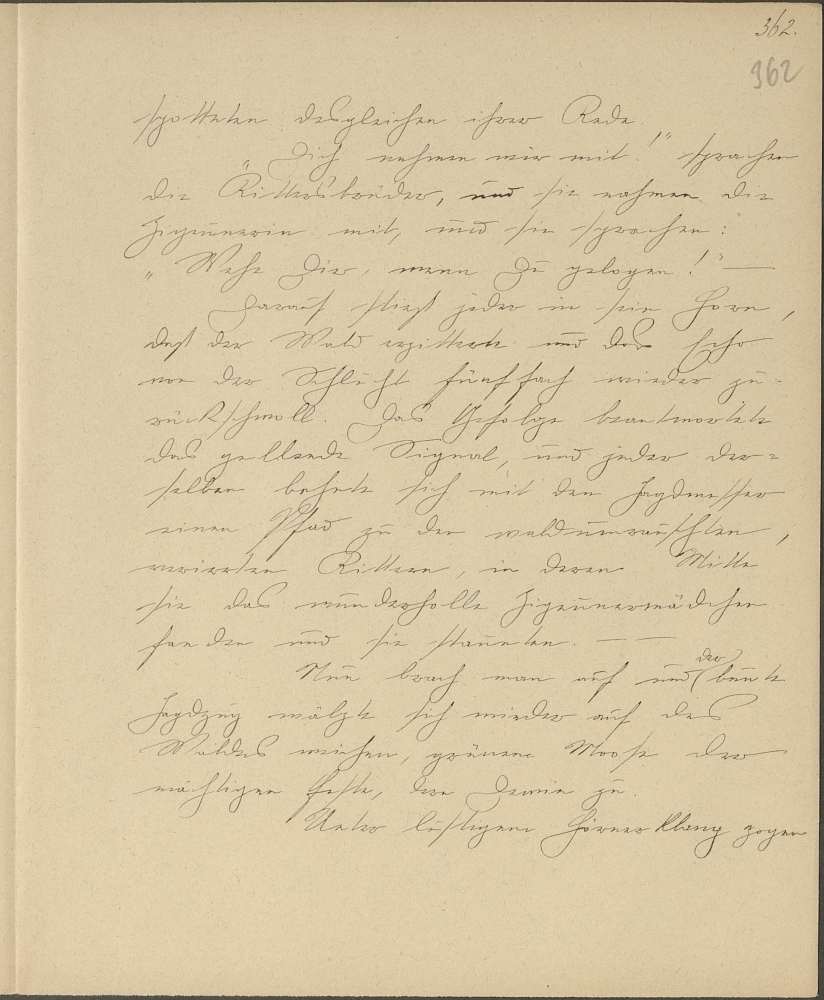 362.
362
spotteten desgleichen ihrer Rede.
„Dich nehmen wir mit!" sprachen
die Rittersbrüder, und sie nahmen die
Zigeunerin mit, und sie sprachen:
„Wehe Dir, wenn Du gelogen!" —
Darauf stieß jeder in sein Horn,
daß der Wald erzitterte und das Echo
von der Schlucht fünffach wieder zu=
rückschwoll. Das Gefolge beantwortete
das gellende Signal, und jeder der=
selben bahnte sich mit dem Jagdmesser
einen Pfad zu den waldumrauschten,
verirrten Rittern, in deren Mitte
sie das wundervolle Zigeunermädchen
fanden und sie staunten. — —
Nun brach man auf und der bunte
Jagdzug wälzte sich wieder auf des
Waldes weichem, grünem Moose der
mächtigen Feste, zu.
Unter lustigem Hörnerklang zogen